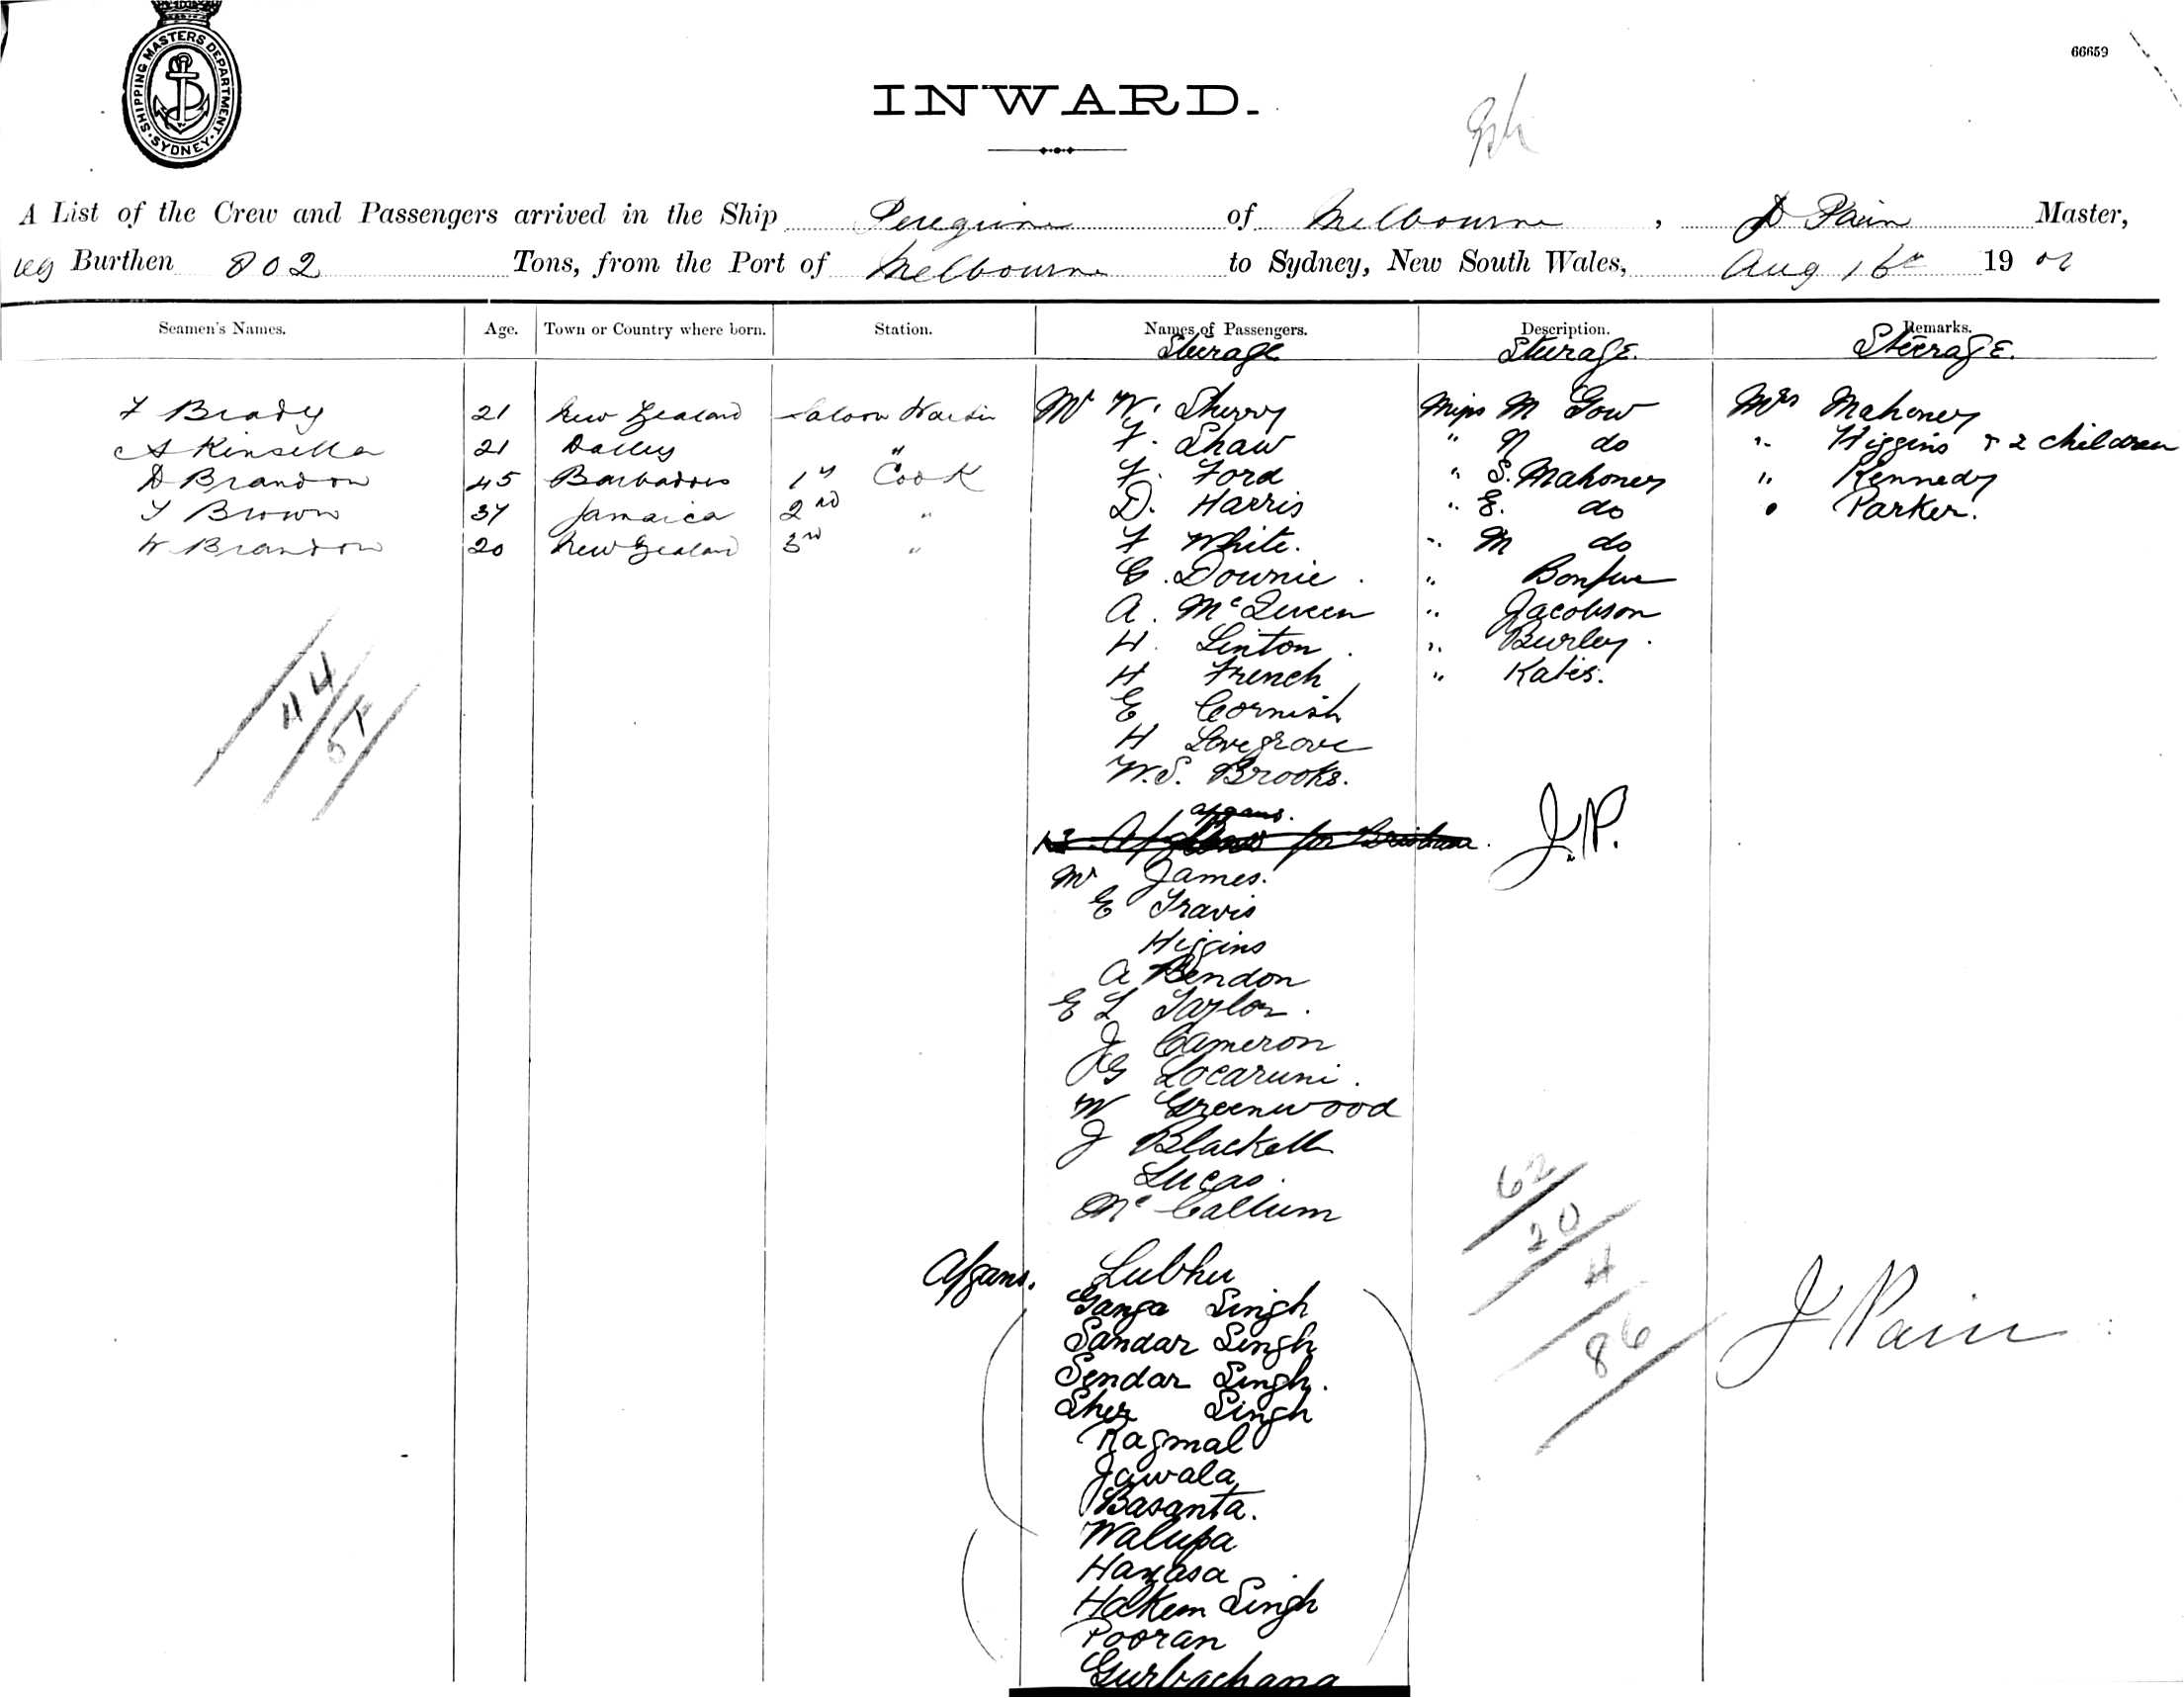 SHIPPING MASTERS DEPARTMENT
SYDNEY
66659
INWARD.
A List of the Crew and Passengers arrived in the Ship Peregrine of Melbourne, D Pain Master,
reg Burthen 802 Tons, from the Port of Melbourne to Sydney, New South Wales, Aug 16th 1902
Seamen's Names. Age. Town or Country where born. Station. Names of Passengers. Description. Remarks.
Steerage Steerage. Steerage.
F Brady 21 New Zealand Saloon Waiter Mr W. Sherry Miss M Gow Mrs Mahoney
A Kinsella 21 " F. Shaw " N do " Higgins & 2 children
D Brandon 45 Barbadoes 1st Cook F. Ford " S. Mahoney " Kennedy
T Brown 37 Jamaica 2nd " D. Harris " E. do " Parker.
W Brandon 20 New Zealand 3rd " F White. " M do
C. Downie. "
A. McQueen " Jacobson
H. Linton. " Burley.
H French " Kates.
E Cornish
H Lovegrove
W.S. Brooks.
44
51
afgans.
13 for Brisbane. J.P.
Mr James.
E Travis
Higgins
A Bendon
E L Taylor.
J Cameron
JG Locaruni.
W Greenwood
J Blackett
Lucas.
McCallum
62
20
4
86
Afgans. Lubhu
Ganga Singh
Sandar Singh
Sendar Singh.
Sher Singh
Ragmal
Jawala
Basanta.
Walupa
Harasa
Hakem Singh
Pooran
Gurbachana
J Pain